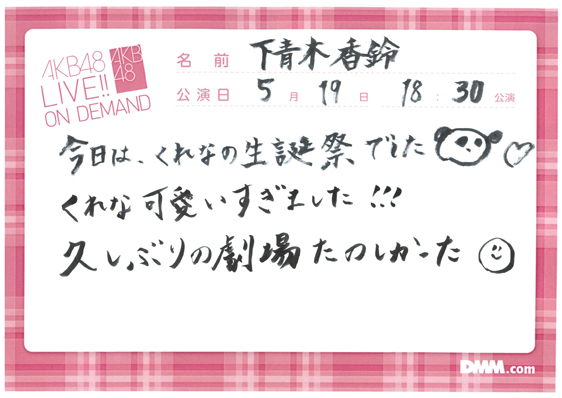 AKB48
LIVE!!
ON DEMAND
AKB
48
名前 下青木香鈴
公演日 5月19日 18:30公演
今日は、くれなの生誕祭でした
くれな可愛いすぎました!!!
久しぶりの劇場たのしかった
DMM.com